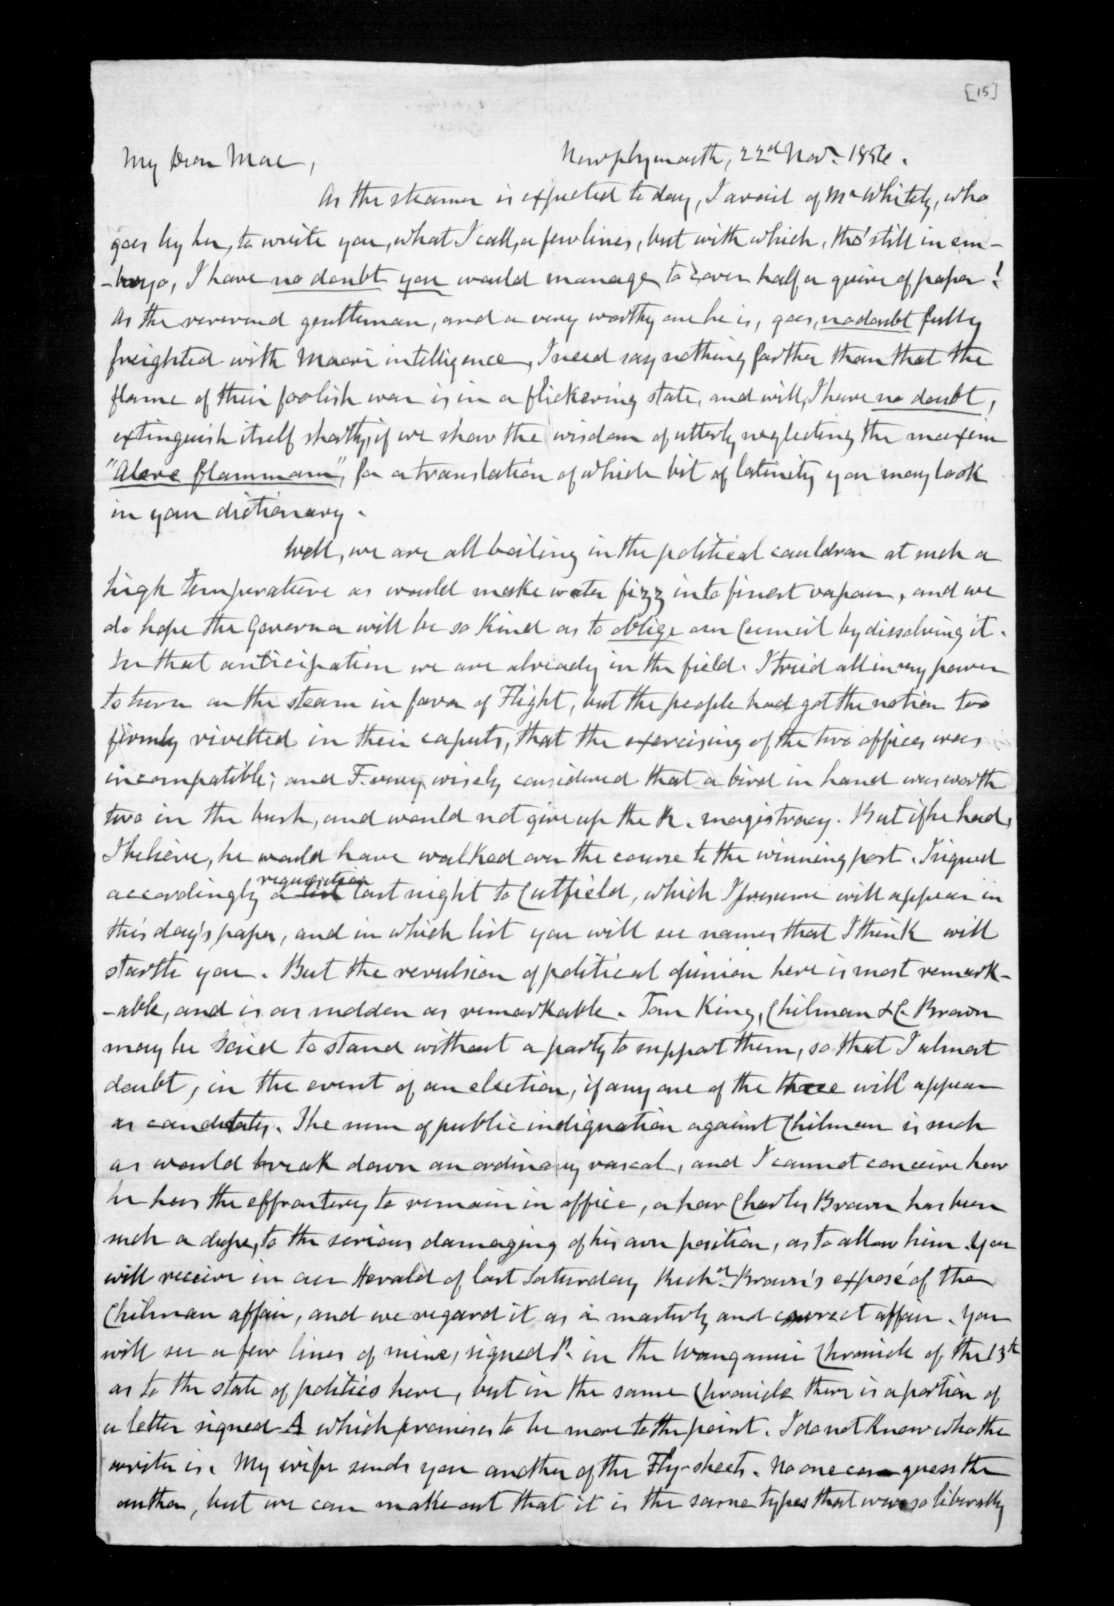 [15]
My Dear Mac, Newplymouth, 22d Nov. 1856.
As the steamer is expected to day, I avail of Mr Whitely, who
goes by her, to write you, what I call, a few lines, but with which, tho' still in em-
-bryo, I have no doubt you would manage to cover half a quire of paper!
As the reverend gentleman, and a very worthy one he is, goes, no doubt fully
freighted with Maori intelligence, I need say nothing farther than that the
flame of their foolish war is in a flickering state, and will, I have no doubt,
extinguish itself shortly, if we show the wisdom of utterly neglecting the maxim
"Alere flammam", for a translation of which bit of latinity you may look
in your dictionary.
Well, we are all boiling in the political cauldron at such a
high temperature as would make water fizz into finest vapour, and we
do hope the Governor will be so kind as to oblige our Council by dissolving it.
In that anticipation we are already in the field. I tried all in my power
to turn on the steam in favor of Flight, but the people had got the notion too
firmly rivetted in their caputs, that the exercising of the two offices was
incompatible; and F. very wisely considered that a bird in hand was worth
two in the bush, and would not give up the R. magistracy. But if he had,
I believe, he would have walked over the course to the winning post. I signed
accordingly a requisition last night to Cutfield, which I presume will appear in
this day's paper, and in which list you will see names that I think will
startle you. But the revulsion of political opinion here is most remark-
-able, and is as sudden as remarkable. Tom King, Chilman & C. Brown
may be said to stand without a party to support them, so that I almost
doubt, in the event of an election, if any one of the three will appear
as candidates. The sum of public indignation against Chilman is such
as would break down an ordinary rascal, and I cannot conceive how
he has the effrontery to remain in office, or how Charles Brown has been
such a dupe, to the serious damaging of his own position, as to allow him. You
will receive in our Herald of last Saturday Richd. Brown's exposé of the
Chilman affair, and we regard it as a masterly and correct affair. You
will see a few lines of mine, signed P. in the Wanganui Chronicle of the 13th
as to the state of politics here, but in the same Chronicle there is a portion of
a letter signed A which promises to be more to the point. I do not know who the
writer is. My wife sends you another of the Fly-sheets. No one can guess the
author, but we can make out that it is the same types that were so liberally